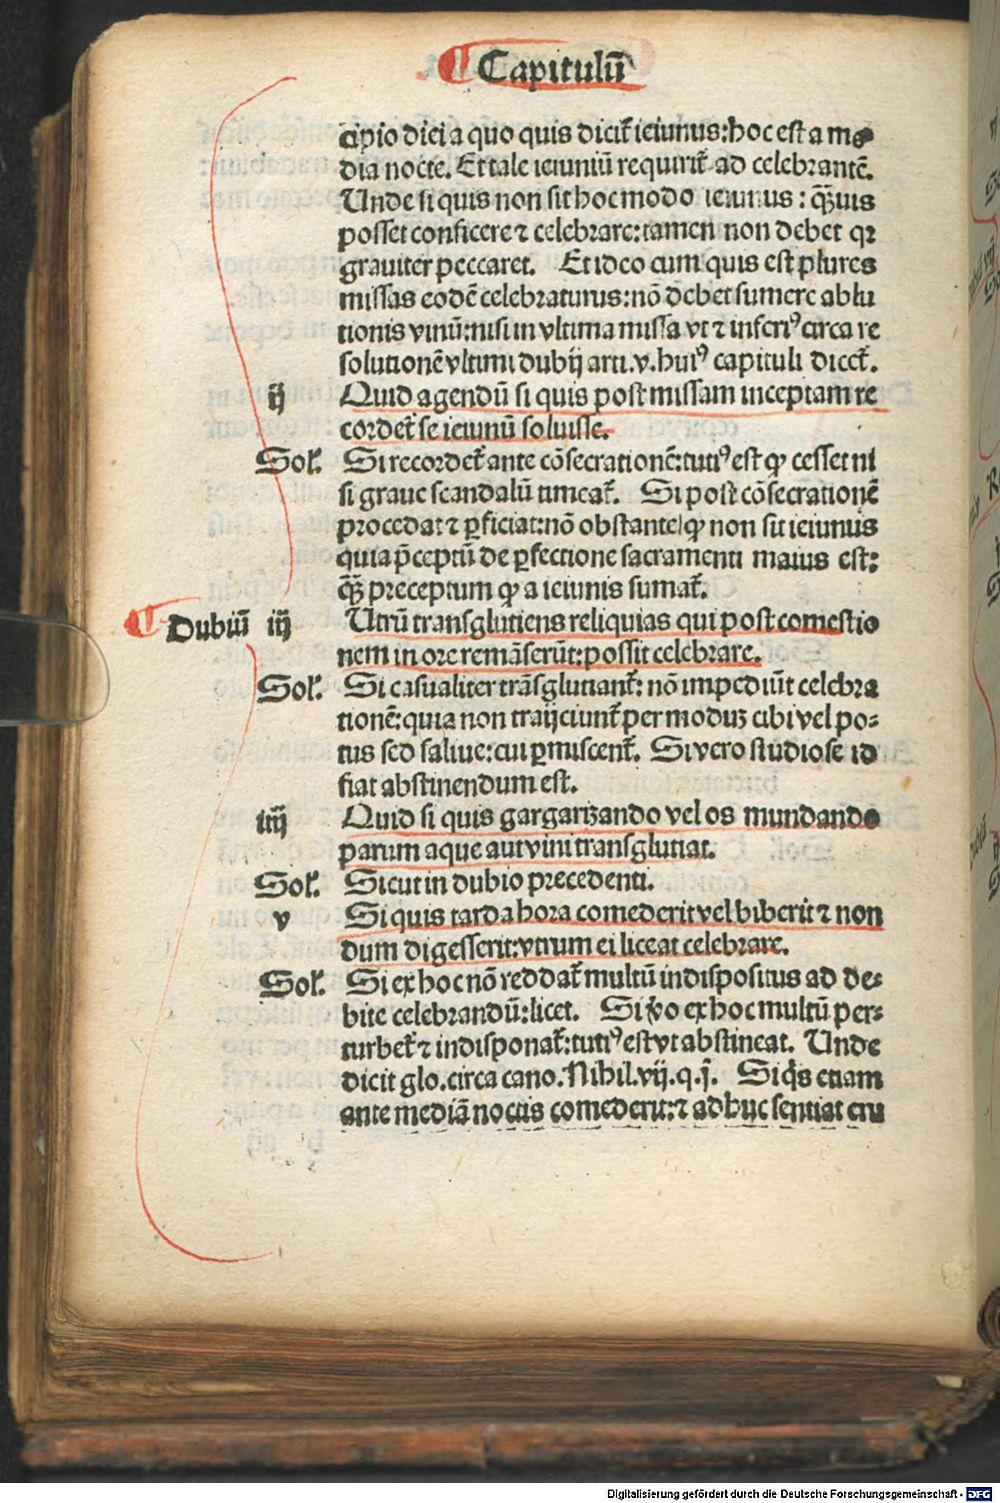 Capitulū
cipio diei a quo quis dicit̄ ieiunus: hoc est a me
dia nocte. Et tale ieiuniū requirit̄ ad celebrantē.
Unde si quis non sit hoc modo ieiunus: qꝫuis
posset conficere ⁊ celebrare: tamen non debet qꝛ
grauiter peccaret. Et ideo cum quis est plures
missas eodē celebraturus: nō debet sumere ablu
tionis vinū: nisi in vltima missa vt ⁊ inferiꝰ circa re
solutionē vltimi dubij arti. v. huiꝰ capituli dicet̄.
ij Quid agendū si quis post missam inceptam re
cordet̄ se ieiunū soluisse.
Sol̄. Si recordet̄ ante cōsecrationē: tutiꝰ est ꝙ cesset ni
si graue scandalū timeat̄. Si post cōsecrationē
procedat ⁊ ꝑficiat: nō obstante ꝙ non sit ieiunus
quia p̄ceptū de ꝑfectione sacramenti maius est:
qꝫ preceptum ꝙ a ieiunis sumat̄.
Dubiū iij Utrū transglutiens reliquias qui post comestio
nem in ore remāserūt: possit celebrare.
Sol̄. Si casualiter trāsglutiant̄: nō impediūt celebra
tionē: quia non traijciunt̄ per moduꝫ cibi vel po⸗
tus sed saliue: cui ꝑmiscent̄. Si vero studiose id
fiat abstinendum est.
iiij Quid si quis gargarizando vel os mundando
parum aque aut vini transglutiat.
Sol̄. Sicut in dubio precedenti.
v Si quis tarda hora comederit vel biberit ⁊ non
dum digesserit: vtrum ei liceat celebrare.
Sol̄. Si ex hoc nō reddat̄ multū indispositus ad de⸗
bite celebrandū: licet. Si ꝟo ex hoc multū per⸗
turbet̄ ⁊ indisponat̄: tutiꝰ est vt abstineat. Unde
dicit glo. circa cano. Nihil. vij. q. j. Si q̇s etiam
ante mediā noctis comederit: ⁊ adhuc sentiat cru
Digitalisierung gefördert durch die Deutsche Forschungsgemeinschaft - DFG